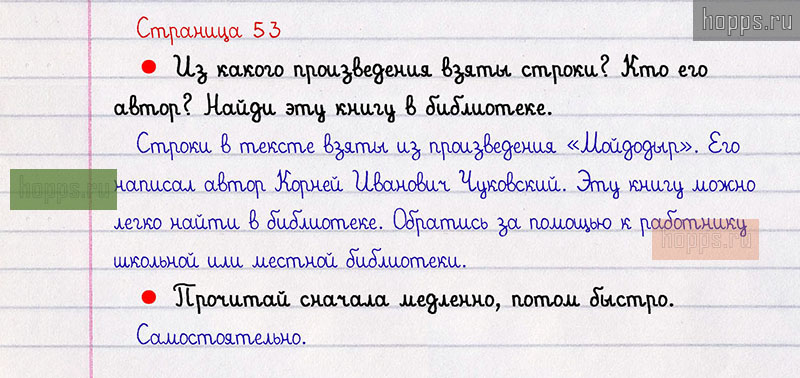 hopps.ru
Страница 53
● Из какого произведения взяты строки? Кто его
автор? Найди эту книгу в библиотеке.
Строки в тексте взяты из произведения «Мойдодыр». Его
hopps.ru
написал автор Корней Иванович Чуковский. Эту книгу можно
легко найти в библиотеке. Обратись за помощью к работнику
hopps.ru
школьной или местной библиотеки.
● Прочитай сначала медленно, потом быстро.
Самостоятельно.